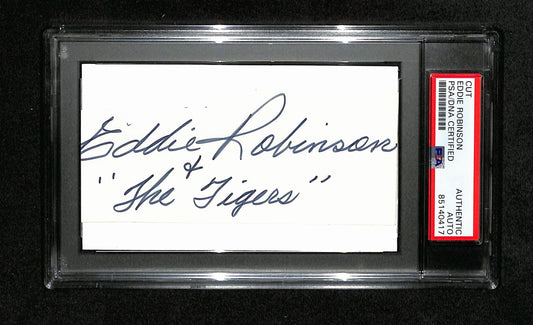 Eddie Robinson
+
"The Tigers"
CUT
EDDIE ROBINSON
PSA/DNA CERTIFIED
PSA
AUTHENTIC
AUTO
85140417